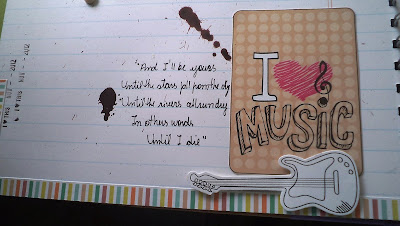 "And I'll be yours
Until the stars fall from the sky
Until the rivers all run dry
In other words
Until I die"
I
MUSIC